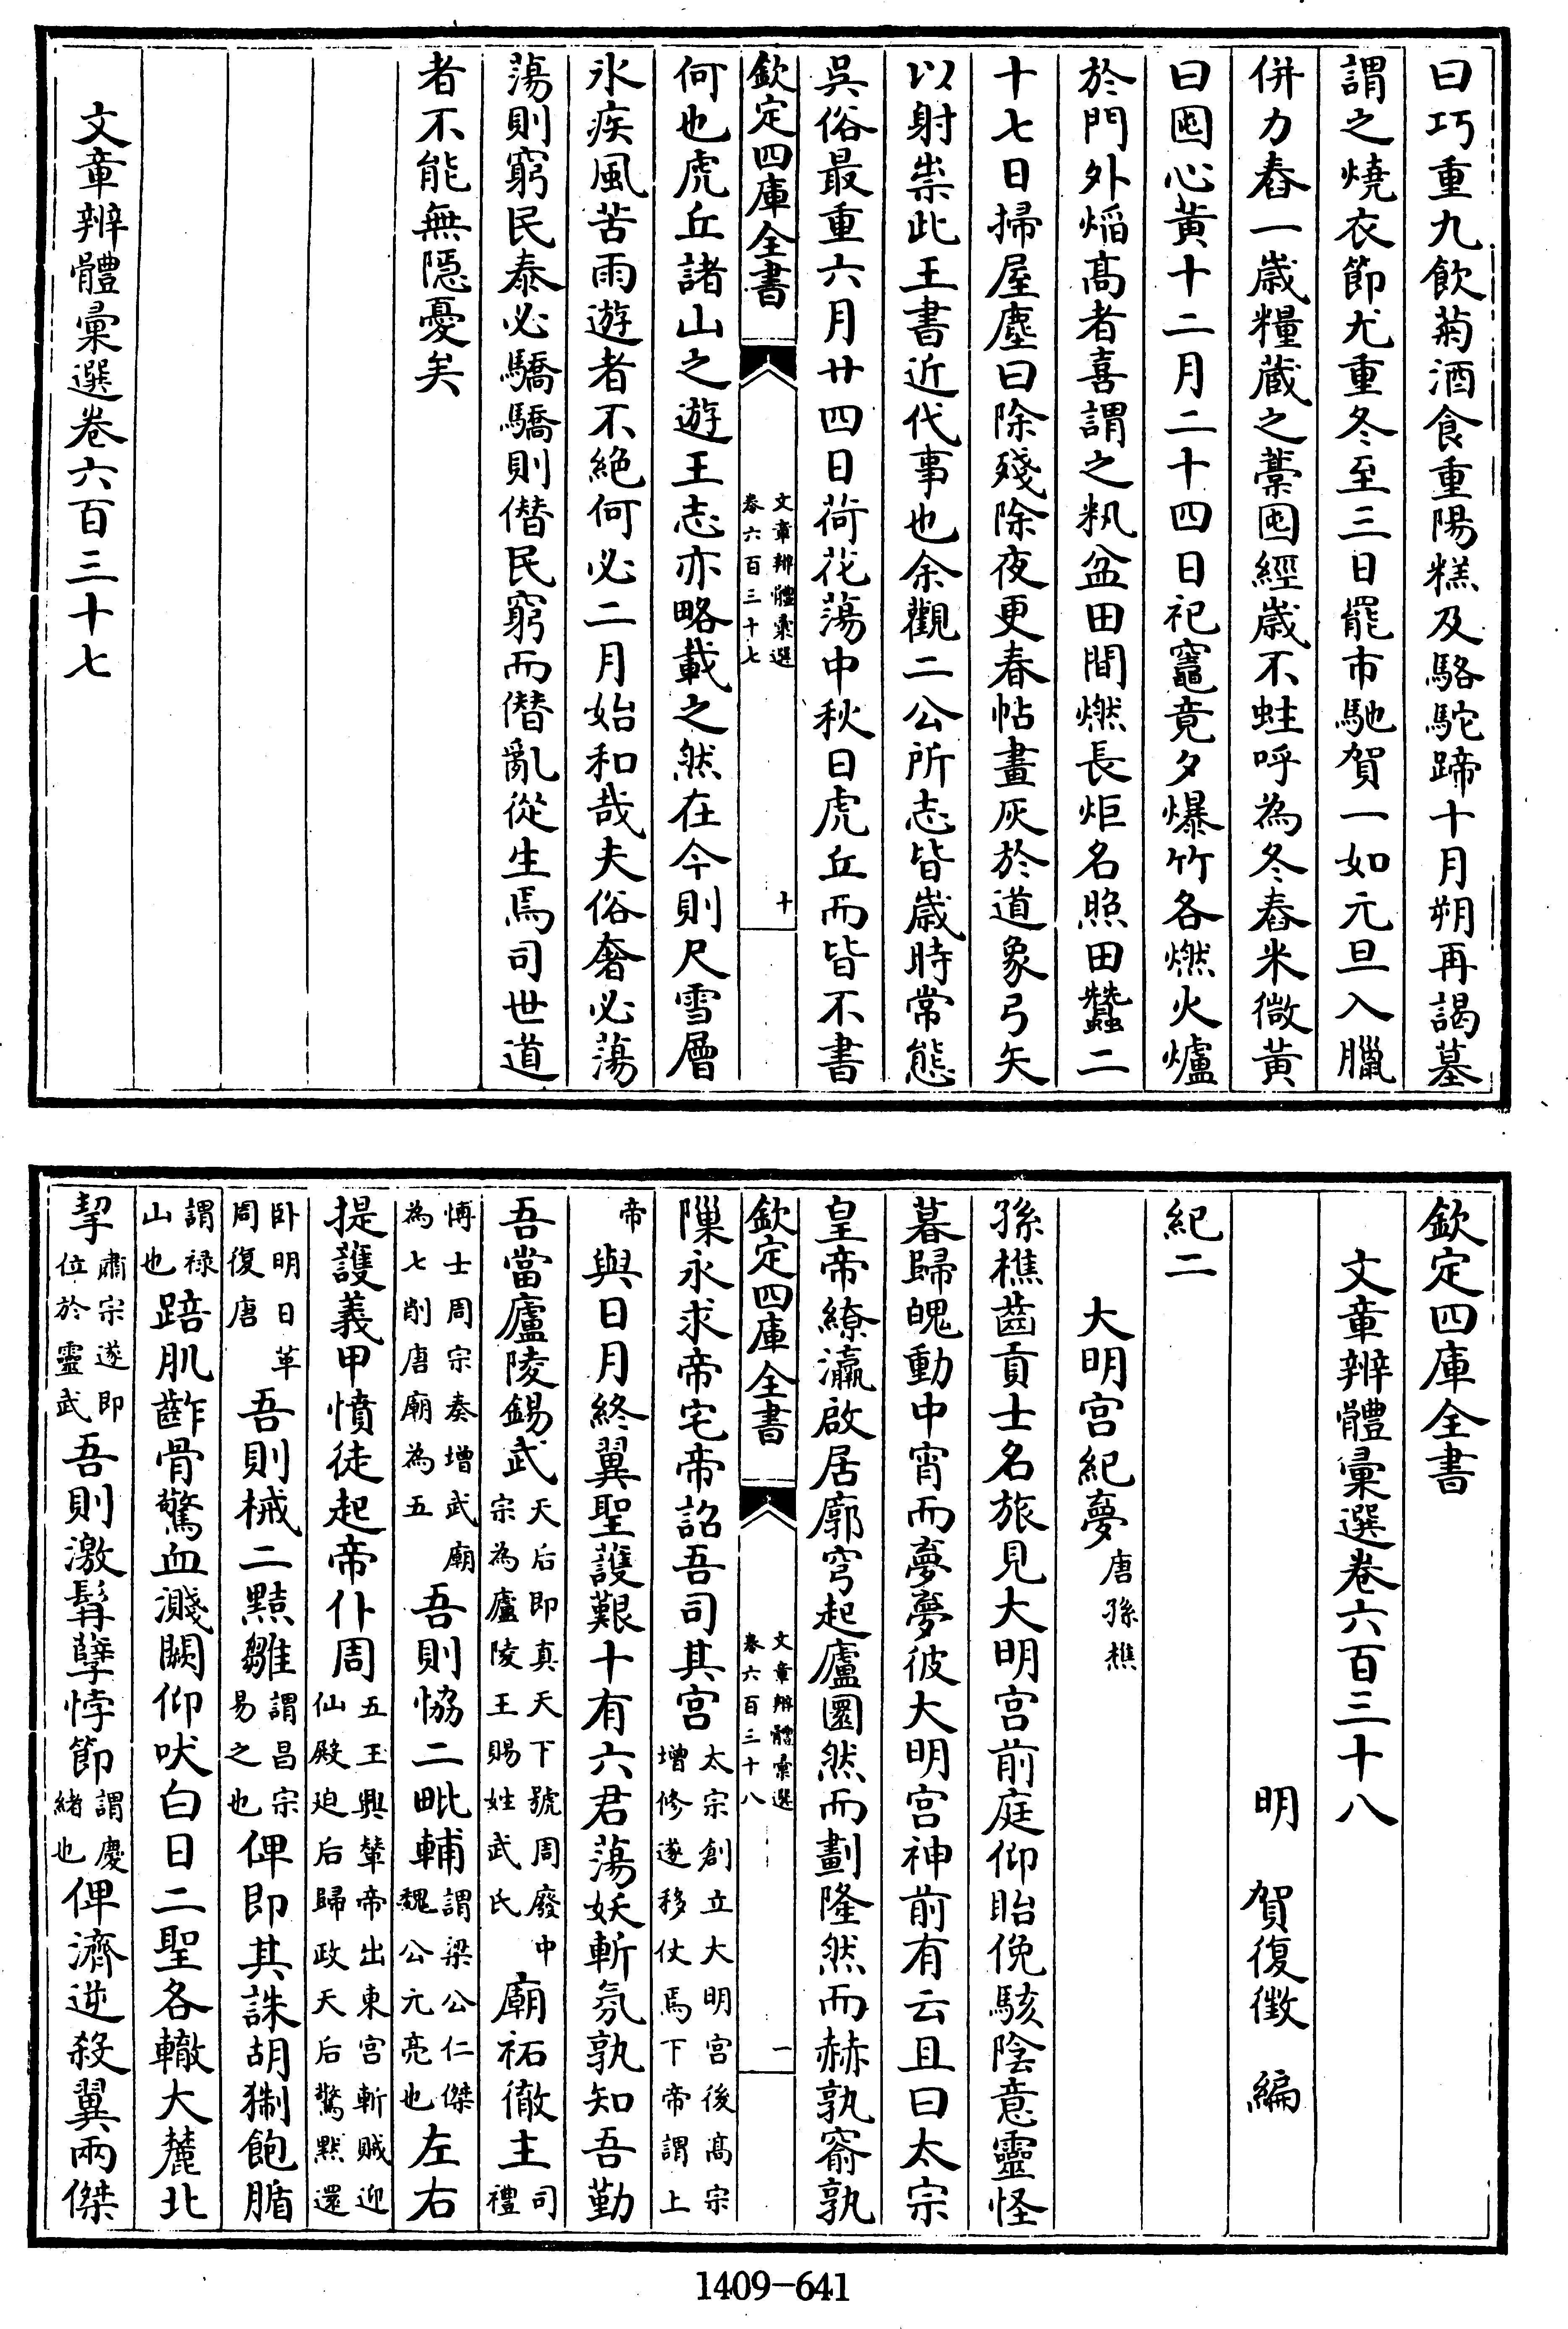 曰巧重九飲菊酒食重陽糕及駱駝蹄十月朔再謁墓
謂之燒衣節尤重冬至三日罷市馳賀一如元旦入臘
併力舂一歲糧蔵之藁囤經歲不蛀呼為冬舂米微黄
曰囤心黄十二月二十四日祀竈竟夕爆竹各燃火爐
於門外熖髙者喜謂之籸盆田間燃長炬名照田蠶二
十七日掃屋塵曰除殘除夜更春帖畫灰於道象弓矢
以射祟此王書近代事也余觀二公所志皆歲時常態
吳俗最重六月廿四日荷花蕩中秋日虎丘而皆不書
欽定四庫全書
文章辨體彙選
卷六百三十七
十
何也虎丘諸山之遊王志亦略載之然在今則尺雪層
氷疾風苦雨遊者不絶何必二月始和哉夫俗奢必蕩
蕩則窮民泰必驕驕則僭民窮而僭亂從生焉司世道
者不能無隠憂矣
文章辨體彙選卷六百三十七
欽定四庫全書
文章辨體彙選卷六百三十八
明 賀復徵 編
紀二
大明宫紀夢唐孫樵
孫樵齒貢士名旅見大明宫前庭仰眙俛駭陰意靈怪
暮歸魄動中宵而夢夢彼大明宫神前有云且曰太宗
皇帝繚瀛啟居廓穹起廬圜然而劃隆然而赫孰窬孰
欽定四庫全書
文章辨體彙選
卷六百三十八
一
隟永求帝宅帝詔吾司其宫太宗創立大明宫後髙宗增修遂移仗焉下帝謂上
帝與日月終翼聖護艱十有六君蕩妖斬氛孰知吾勤
吾當廬陵錫武天后即真天下號周廢中宗為廬陵王賜姓武氏廟祏徹主司禮
博士周宗奏增武廟為七削唐廟為五吾則恊二毗輔謂梁公仁傑魏公元亮也左右
提䕶義甲憤徒起帝仆周五王興輦帝出東宫斬賊迎仙殿廹后歸政天后驚默還
卧明日革周復唐吾則械二黠雛謂昌宗易之也俾即其誅胡猘飽腯
謂禄山也踣肌齰骨驚血濺闕仰吠白日二聖各轍大麓北
挈肅宗遂即位於靈武吾則激髯孽悖節謂慶緒也俾濟逆殺翼兩傑
1409-641